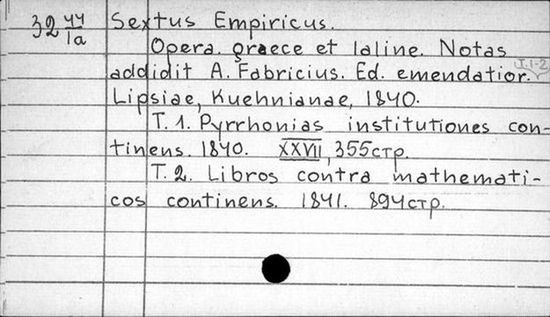 32 44/1a Sextus Empiricus.
Opera graece et laline. Notas
addidit A. Fabricius. Ed. emendatior. T.1-2
Lipsiae, Kuehnianae, 1840.
T. 1. Pyrrhonias institutiones con-
tinens. 1840. XXVII, 355стр.
T. 2. Libros contra mathemati-
cos continens. 1841. 894стр.